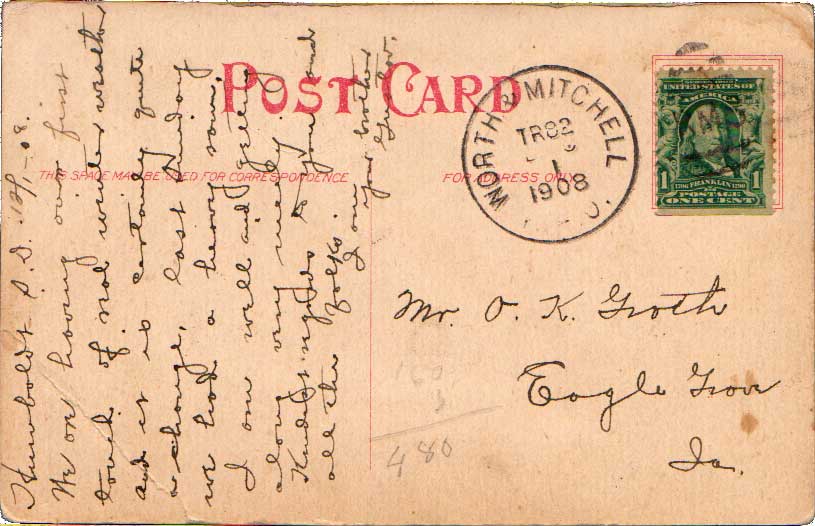 POST CARD
THIS SPACE MAY BE USED FOR CORRESPONDENCE
FOR ADDRESS ONLY
WORTH & MITCHELL
TR82
1
1908
R.P.O.
SERIES 1902
UNITED STATES OF
AMERICA
1 1706 FRANKLIN 1790 1
POSTAGE
ONE CENT
Humboldt S. D. 12/1-08.
We are having our first
touch of real winter weather
and it is certainly quite
a change, last Sunday
we had a heavy snow.
I am well and getting
along very nicely.
Kindest regards to you and
all the folks.
I am your brother
Mr. O. K. Groth
Eagle Grove
Ia.
160
480